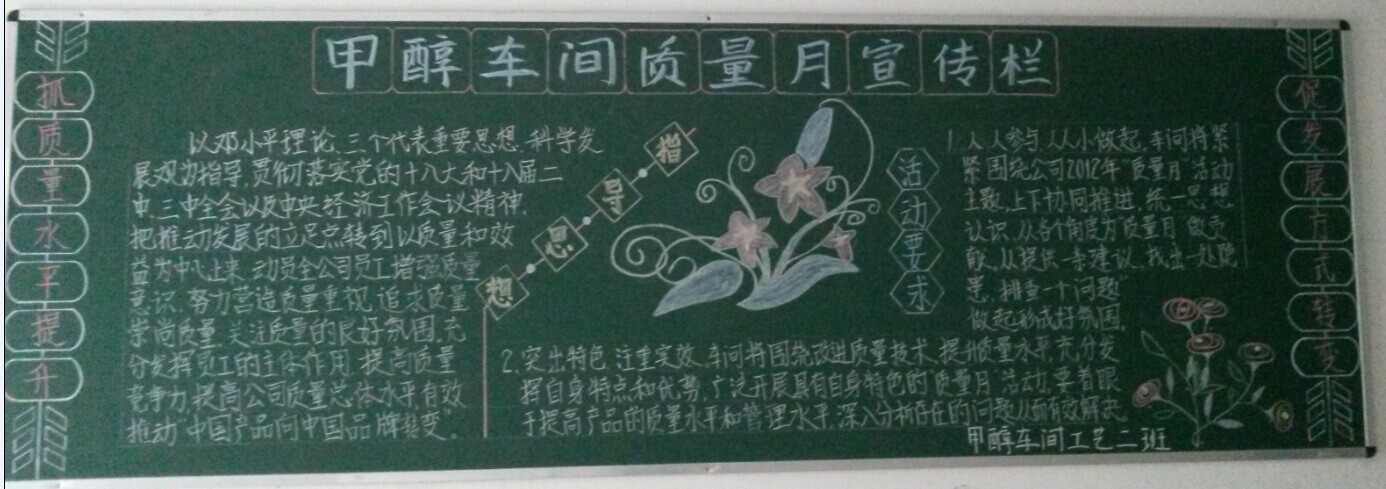 甲醇车间质量月宣传栏
抓质量水平提升
以邓小平理论、三个代表重要思想、科学发
展观为指导,贯彻落实党的十八大和十八届二
中,三中全会以及中央经济工作会议精神,
把推动发展的立足点转到以质量和效
益为中心上来,动员全公司员工增强质量
意识,努力营造质量重视,追求质量
崇尚质量,关注质量的良好氛围,充
分发挥员工的主体作用,提高质量
竞争力,提高公司质量总体水平,有效
推动“中国产品向中国品牌转变”。
指导思想
活动要求
1.人人参与,从小做起,车间将紧
紧围绕公司2012年“质量月”活动
主题,上下协同推进,统一思想
认识,从各个角度为质量月做贡
献,从提供一条建议,找出一处隐
患,排查一个问题”
做起形成好氛围。
2.突出特色,注重实效,车间将围绕改进质量技术,提升质量水平,充分发
挥自身特点和优势,广泛开展具有自身特色的“质量月”活动,要着眼
于提高产品的质量水平和管理水平,深入分析存在的问题从而有效解决
甲醇车间工艺二班
促发展方式转变